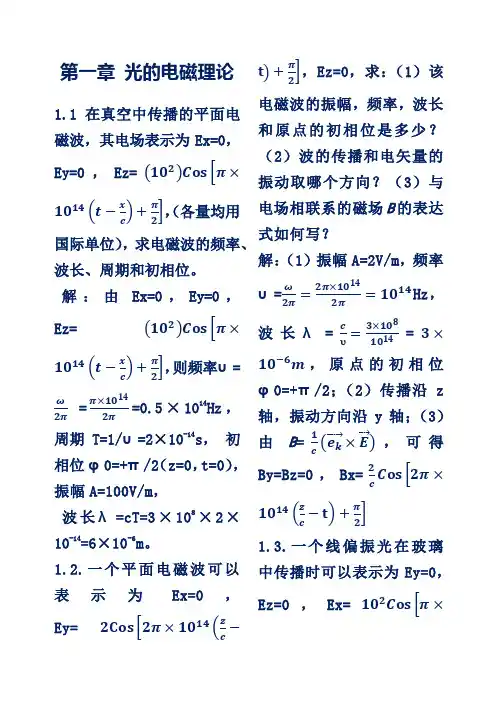 第一章 光的电磁理论
1.1 在真空中传播的平面电
磁波，其电场表示为 Ex=0，
Ey=0 ，Ez= (10²)Cos[π×
10¹⁴(t − x/c) + π/2]，（各量均用
国际单位），求电磁波的频率、
波长、周期和初相位。
解：由 Ex=0，Ey=0，
Ez= (10²)Cos[π×
10¹⁴(t − x/c) + π/2]，则频率υ=
ω/2π = π×10¹⁴/2π =0.5×10¹⁴Hz，
周期 T=1/υ=2×10⁻¹⁴s， 初
相位φ0=+π/2（z=0，t=0），
振幅 A=100V/m，
波长λ=cT=3×10⁸×2×
10⁻¹⁴=6×10⁻⁶m。
1.2.一个平面电磁波可以
表示为 Ex=0 ，
Ey= 2Cos[2π × 10¹⁴(z/c −
t) + π/2]，Ez=0，求：（1）该
电磁波的振幅，频率，波长
和原点的初相位是多少？
（2）波的传播和电矢量的
振动取哪个方向？（3）与
电场相联系的磁场B的表达
式如何写？
解：（1）振幅 A=2V/m，频率
υ=ω/2π = 2π×10¹⁴/2π = 10¹⁴Hz，
波长λ= c/υ = 3×10⁸/10¹⁴ = 3 ×
10⁻⁶m，原点的初相位
φ0=+π/2；（2）传播沿 z
轴，振动方向沿 y 轴；（3）
由 B= 1/c(e⃗k × E⃗)，可得
By=Bz=0 ，Bx= 2/c Cos[2π ×
10¹⁴(z/c − t) + π/2]
1.3.一个线偏振光在玻璃
中传播时可以表示为 Ey=0，
Ez=0 ，Ex= 10²Cos[π ×